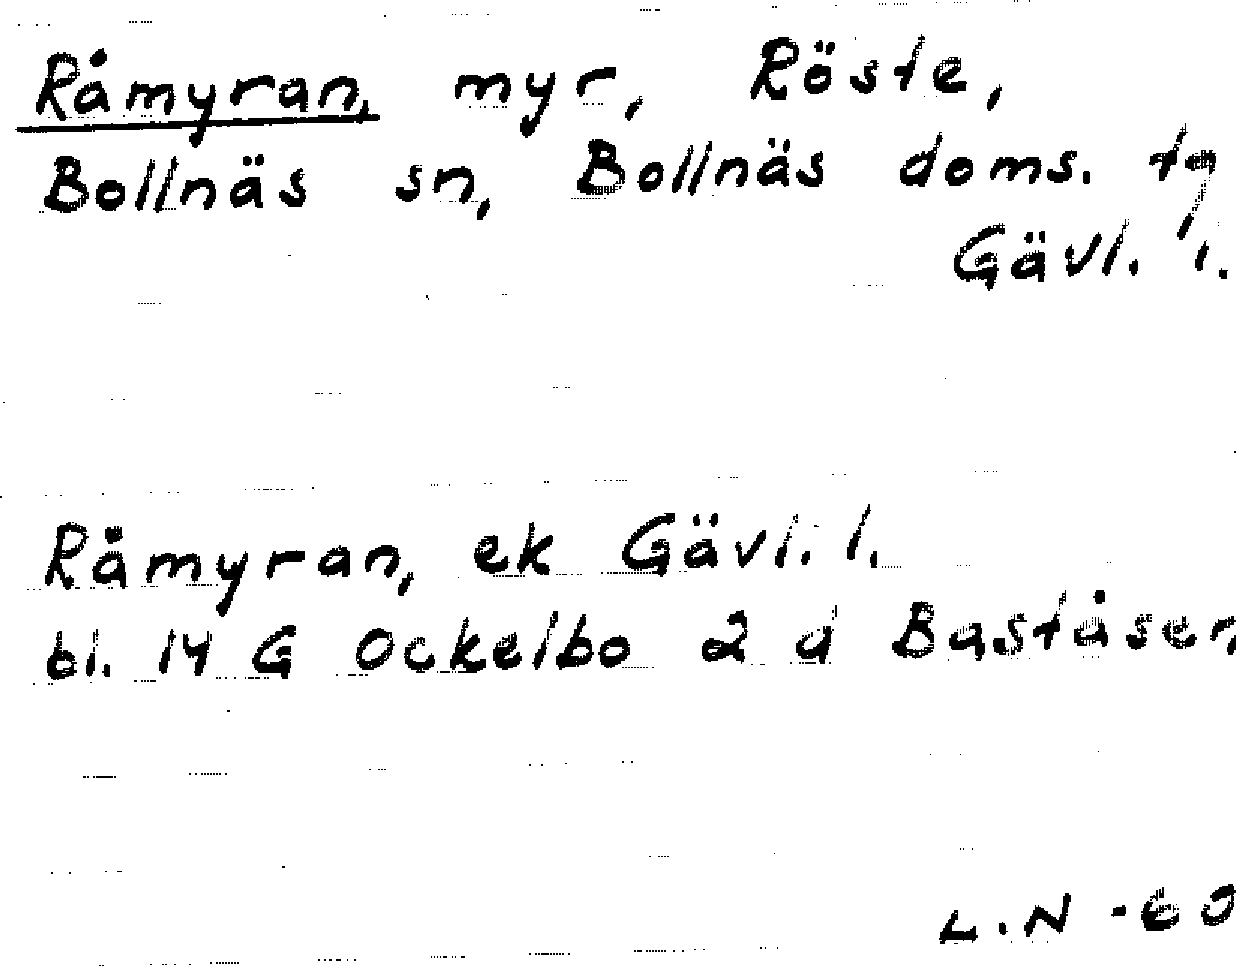 Råmyran, myr, Röste,
Bollnäs sn, Bollnäs doms. tg
Gävl. l.
Råmyran, ek Gävl. l.
bl. 14 G Ockelbo 2 d Baståsen,
L.N -60